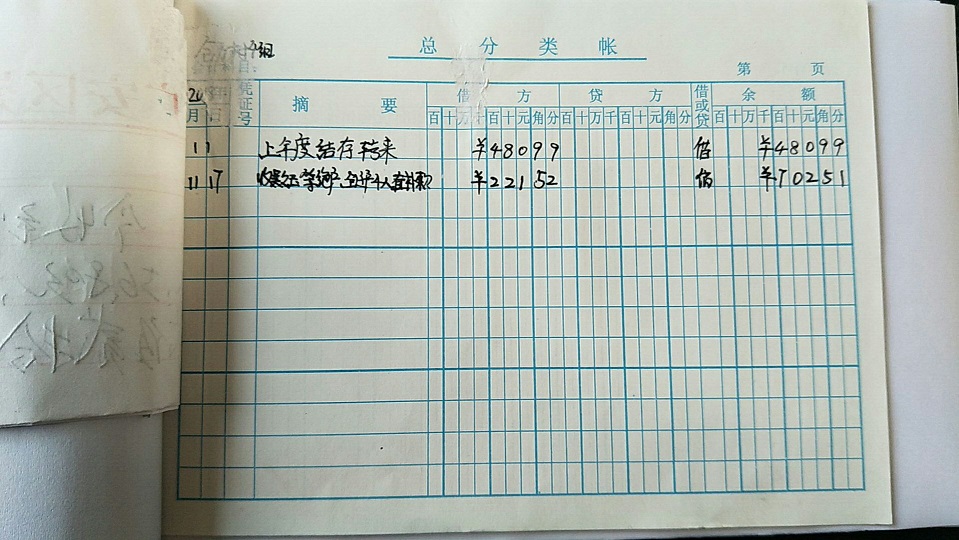 总分类帐
第 页
20 年 凭证号 摘要 借方 贷方 借或贷 余额
月 日 百十万千百十元角分 百十万千百十元角分 百十万千百十元角分
1 1 上年度结存转来 ¥48099 借 ¥48099
11 17 ¥22152 借 ¥70251